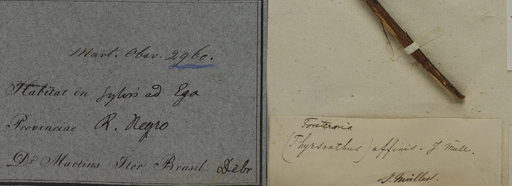 Mart. Obs. 2960.
Habitat in sylvis ad Ega
Provinciae R. Negro
Dr Martius Iter Brasil. Debr
Forsteronia
(Thyrsanthus) affinis. J Müll.
J. Müller